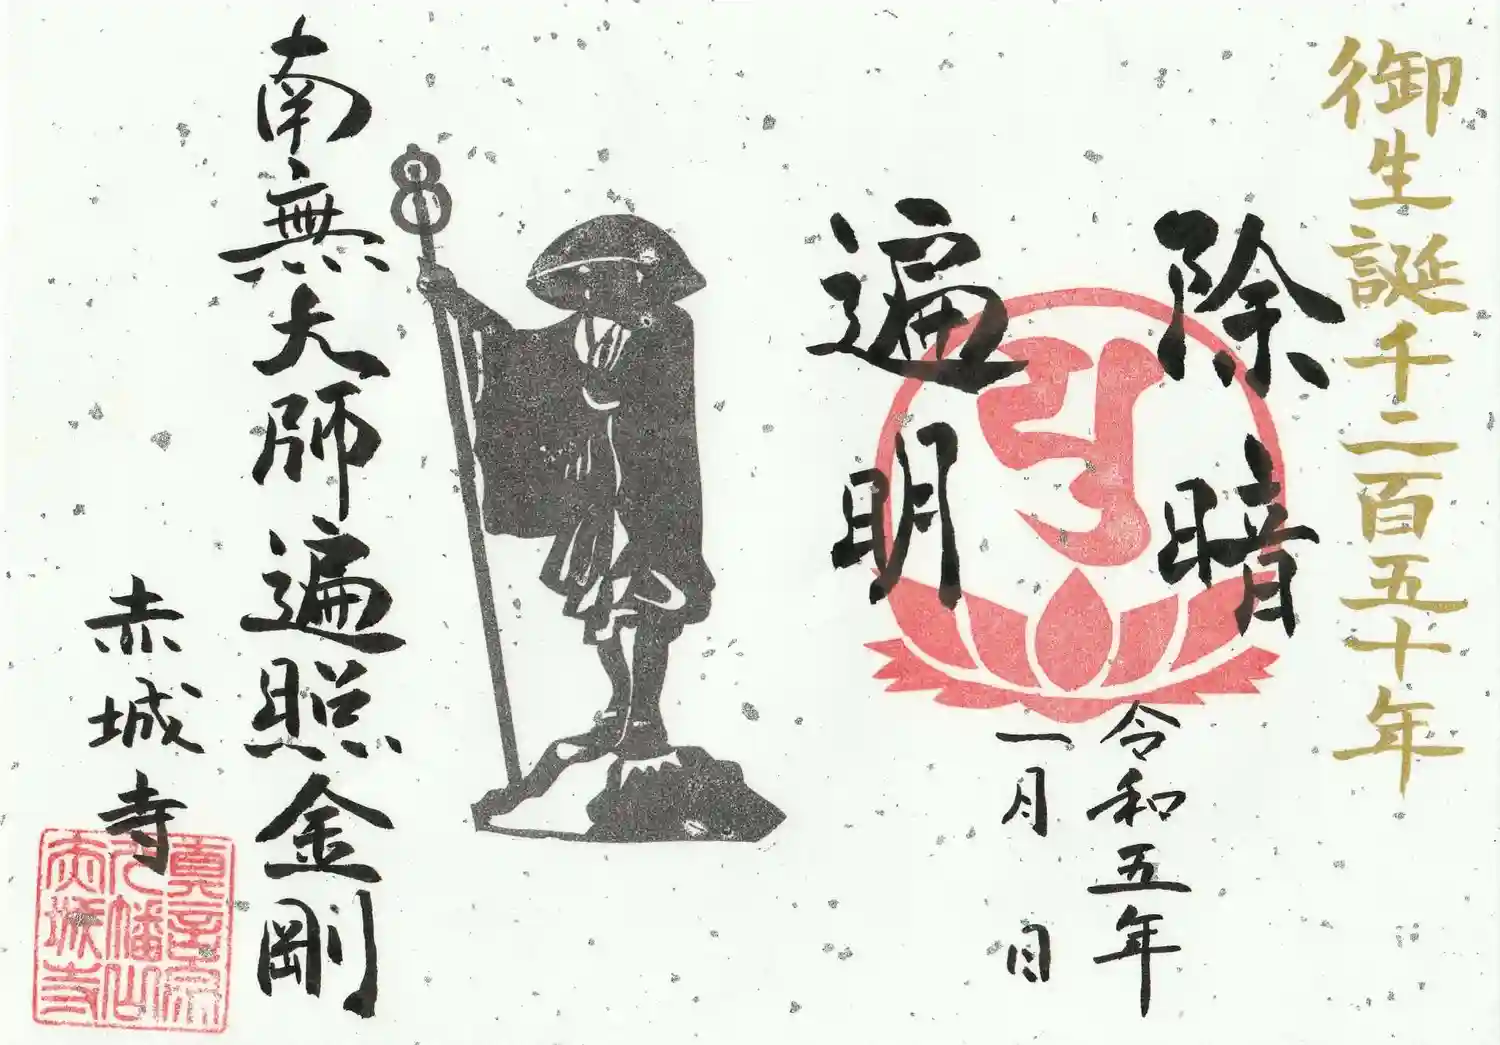 御生誕千二百五十年
除暗
遍明
令和五年
一月 日
南無大師遍照金剛
赤城寺
真言宗
八幡山
赤城寺